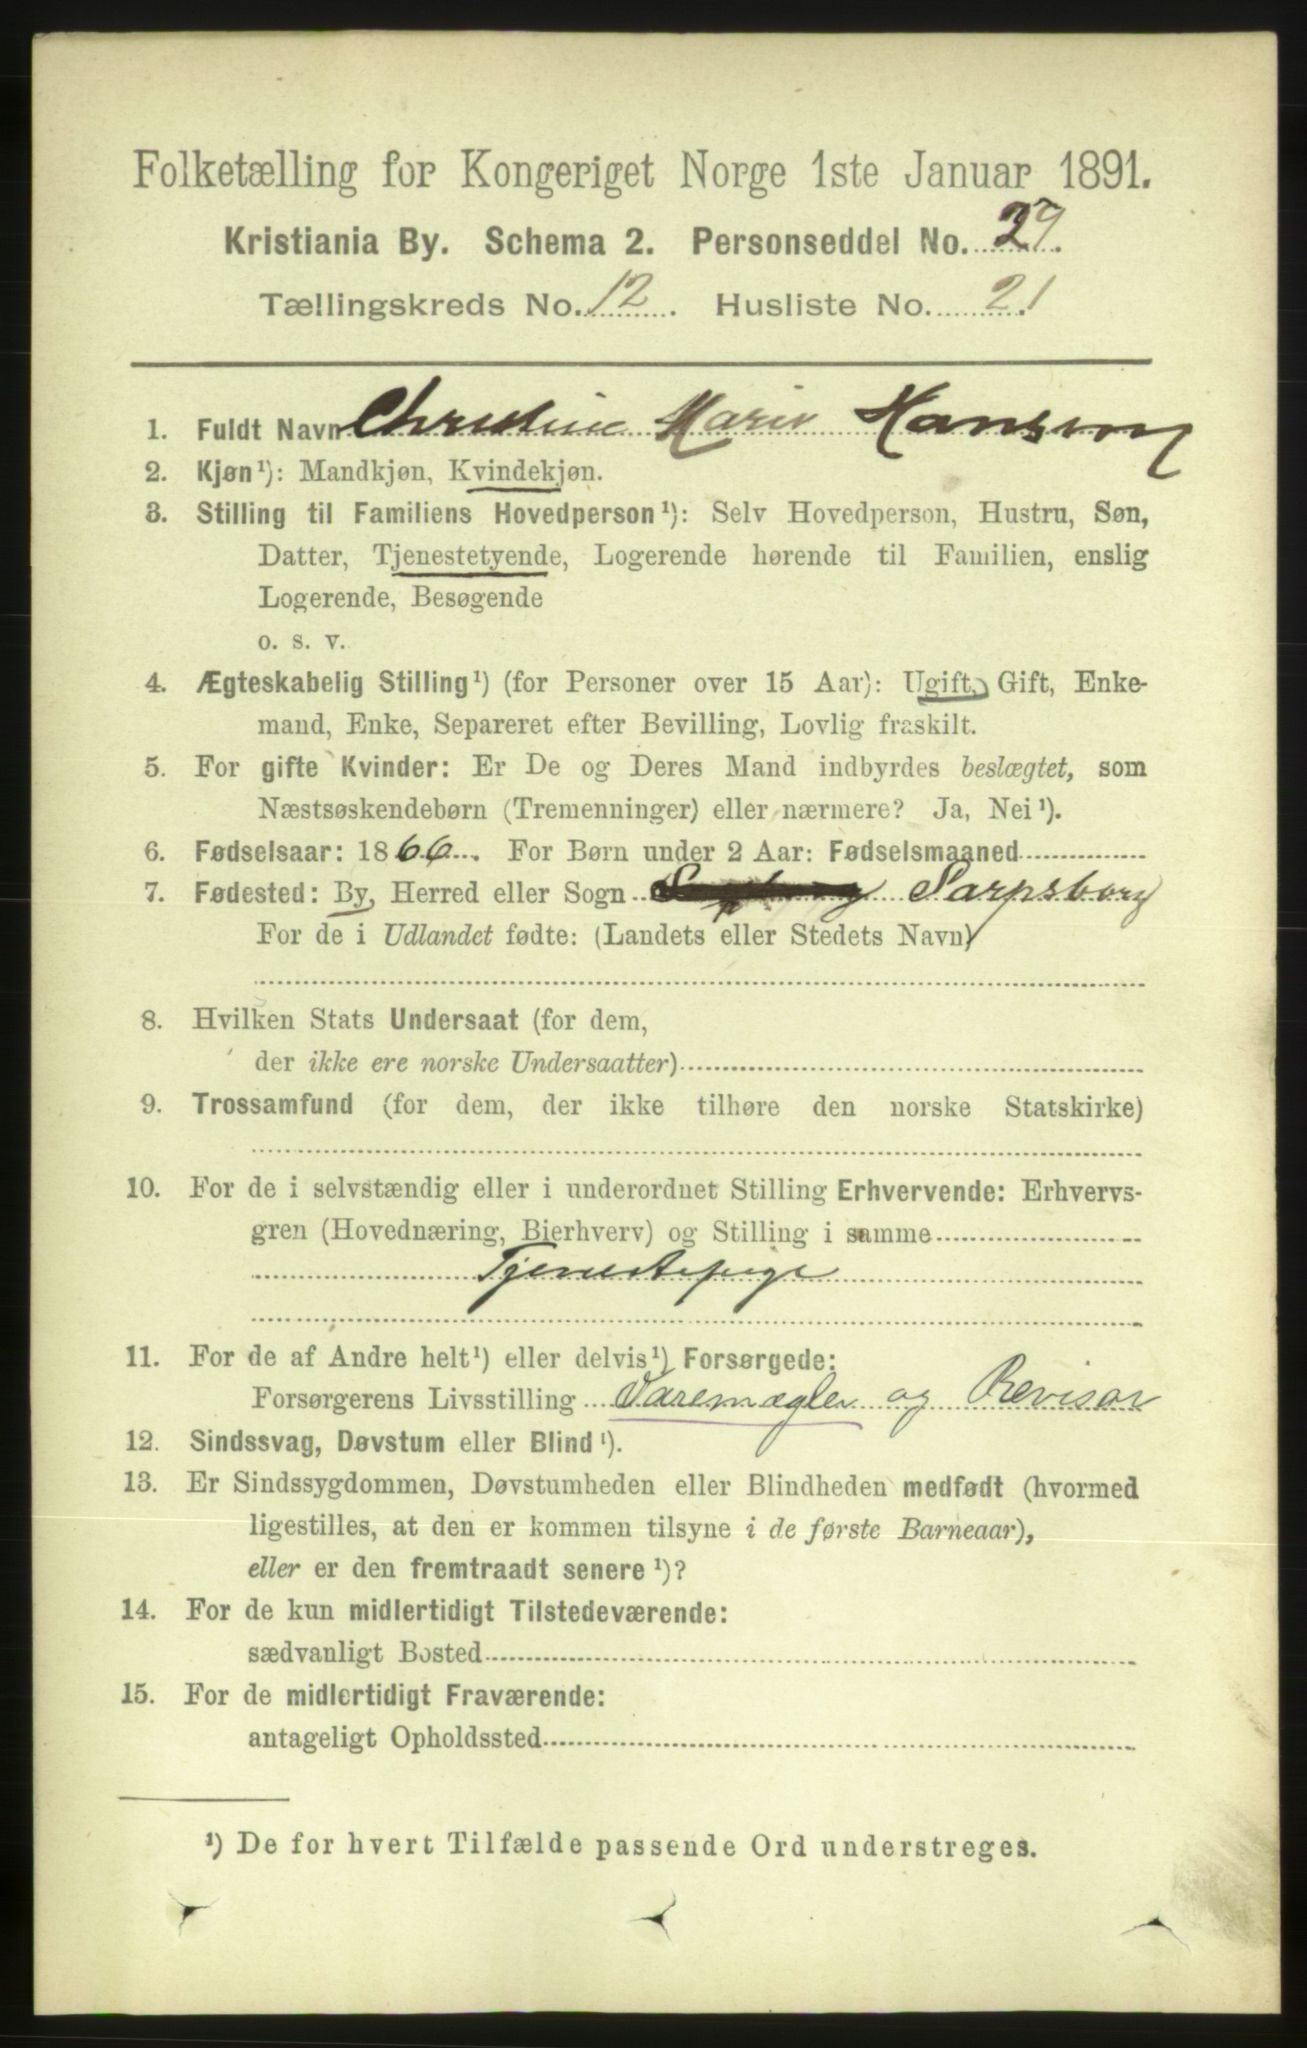 Folketælling for Kongeriget Norge 1ste Januar 1891.
Kristiania By. Schema 2. Personseddel No. 29.
Tællingskreds No. 12. Husliste No. 21
1. Fuldt Navn Christine Marie Hansen
2. Kjøn¹): Mandkjøn, Kvindekjøn.
3. Stilling til Familiens Hovedperson¹): Selv Hovedperson, Hustru, Søn,
Datter, Tjenestetyende, Logerende hørende til Familien, enslig
Logerende, Besøgende
o. s. v.
4. Ægteskabelig Stilling¹) (for Personer over 15 Aar): Ugift, Gift, Enke-
mand, Enke, Separeret efter Bevilling, Lovlig fraskilt.
5. For gifte Kvinder: Er De og Deres Mand indbyrdes beslægtet, som
Næstsøskendebørn (Tremenninger) eller nærmere? Ja, Nei¹).
6. Fødselsaar: 1866. For Børn under 2 Aar: Fødselsmaaned
7. Fødested: By, Herred eller Sogn Sarpsborg
For de i Udlandet fødte: (Landets eller Stedets Navn)
8. Hvilken Stats Undersaat (for dem,
der ikke ere norske Undersaatter)
9. Trossamfund (for dem, der ikke tilhøre den norske Statskirke)
10. For de i selvstændig eller i underordnet Stilling Erhvervende: Erhvervs-
gren (Hovednæring, Bierhverv) og Stilling i samme
Tjenestepige
11. For de af Andre helt¹) eller delvis¹) Forsørgede:
Forsørgerens Livsstilling Varemægler og Revisor
12. Sindssvag, Døvstum eller Blind¹).
13. Er Sindssygdommen, Døvstumheden eller Blindheden medfødt (hvormed
ligestilles, at den er kommen tilsyne i de første Barneaar),
eller er den fremtraadt senere¹)?
14. For de kun midlertidigt Tilstedeværende:
sædvanligt Bosted
15. For de midlertidigt Fraværende:
antageligt Opholdssted
¹) De for hvert Tilfælde passende Ord understreges.